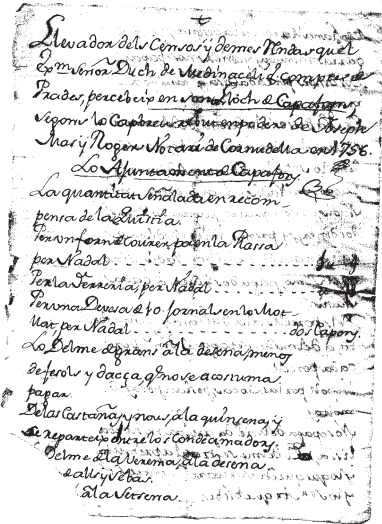 Llevador dels Censos y demes Rendas quel
Exm. Señor Duch de Medinaceli y compte de
Prades, percebeix en lo Lloch de Capafons
segons lo Capbreu rebut en poder de Joseph
Mas y Roger Notari de Cornudella en 1758.
Lo Ajuntament de Capafons.
La quantitat señalada en recom
pensa de la Quistia.
Per un forn de courer pa en la Plassa
per Nadal
Per la Ferreria, per Nadal
Per una Devesa de 10 jornals en lo Mot
llat, per Nadal dos Capons.
Lo Delme de grans a la desena, menos
de fesols y dacça q. no se acostuma
pagar.
De las Castañas y nous, a la quinsena, y
se reparteix entre los Condecimadors.
Delme de la Verema, a la desena
de alls y sebas
a la setsena.